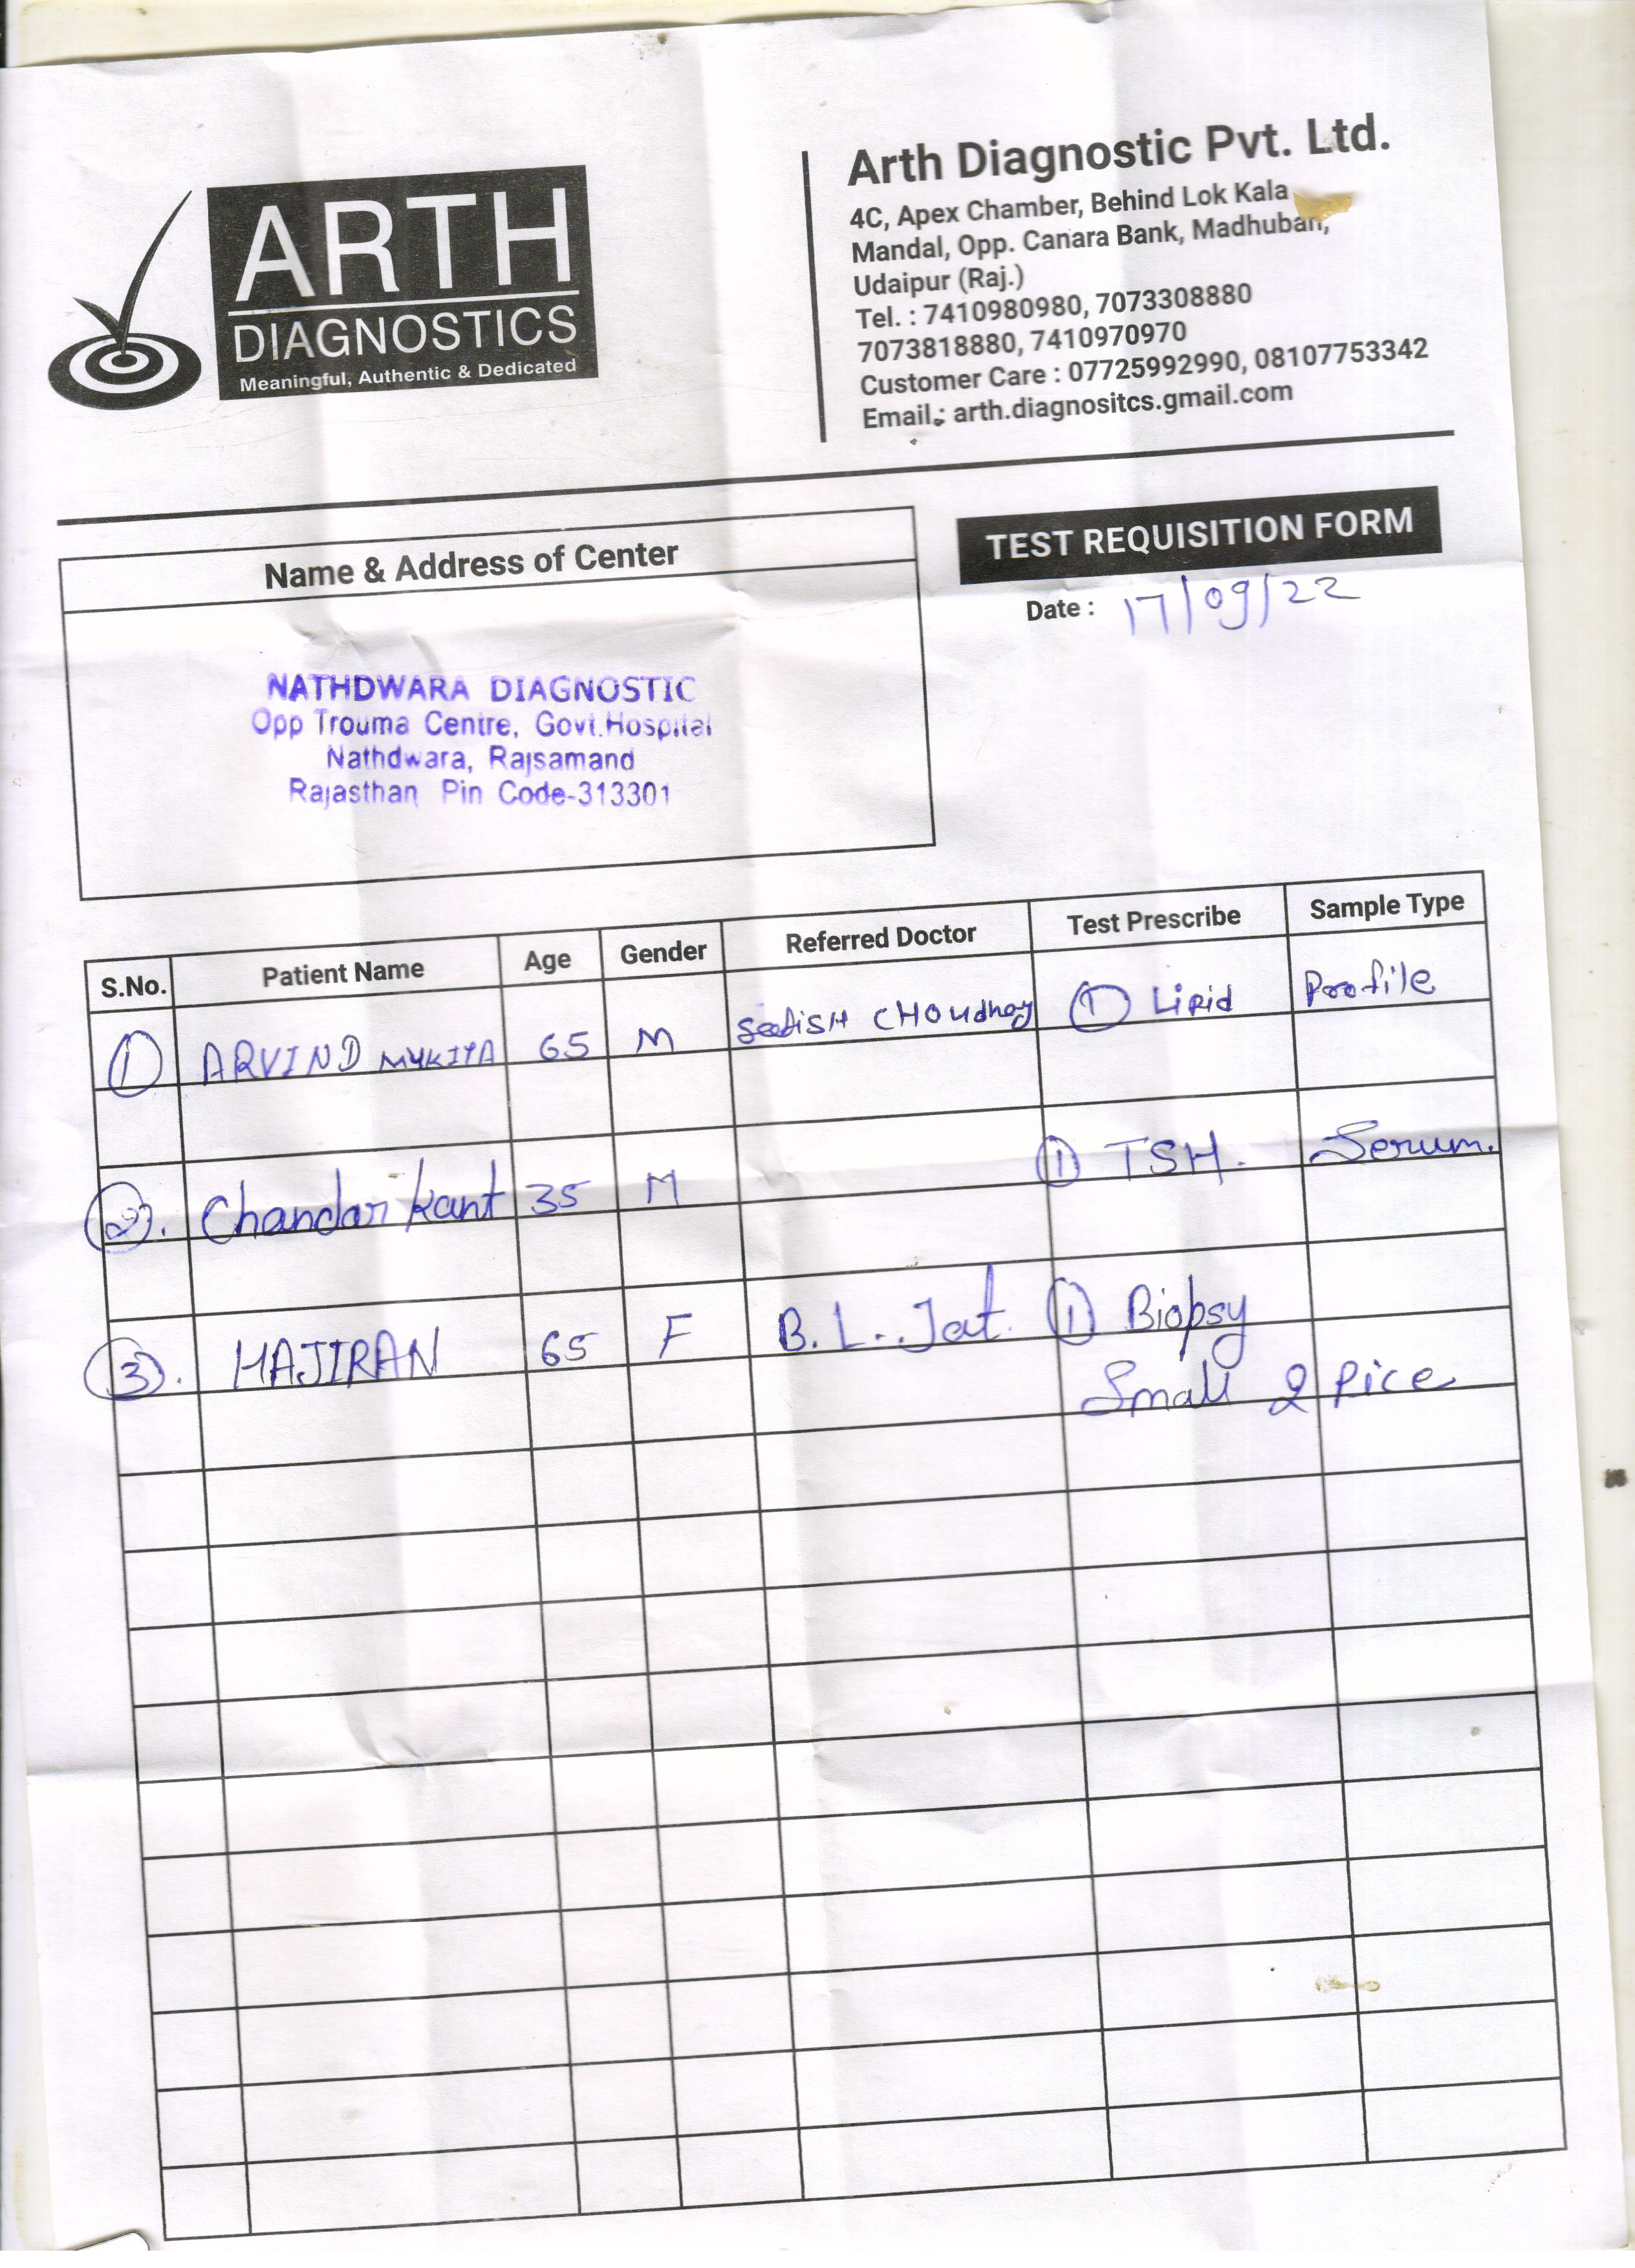 ARTH
DIAGNOSTICS
Meaningful, Authentic & Dedicated
Arth Diagnostic Pvt. Ltd.
4C, Apex Chamber, Behind Lok Kala
Mandal, Opp. Canara Bank, Madhuban,
Udaipur (Raj.)
Tel. : 7410980980, 7073308880
7073818880, 7410970970
Customer Care : 07725992990, 08107753342
Email : arth.diagnositcs.gmail.com
Name & Address of Center
NATHDWARA DIAGNOSTIC
Opp Trouma Centre, Govt.Hospital
Nathdwara, Rajsamand
Rajasthan Pin Code-313301
TEST REQUISITION FORM
Date : 17/09/22
S.No. Patient Name Age Gender Referred Doctor Test Prescribe Sample Type
1 ARVIND MUKIYA 65 M CHOUDHRY 1 Lipid Profile
2. Chandar Kant 35 M 1 TSH. Serum.
3. HAJIRAN 65 F B.L. Jat. 1 Biopsy
Small 2 Pice